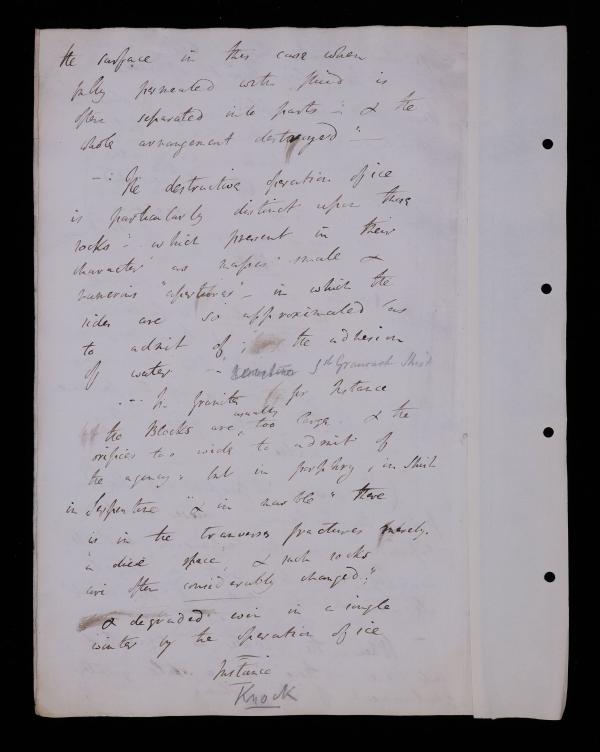 the surface in this case when
fully permeated with fluid is
often separated into parts - & the
whole arrangement destroyed" —
—: The destructive operation of ice
is particularly distinct upon those
rocks - which present in their
character as masses small &
numerous "apertures" - in which the
sides are so approximated as
to admit of the adhesion
of water - Grauwack Shist
--- In granite for Instance
usually
the Blocks are, too large. & the
orifices too wide to admit of
the agency: but in porphyry, in Shist
in Serpentine & in marble" there
is in the tranverse fractures merely.
a space, & such rocks
are often considerably changed;"
& degraded even in a single
winter by the operation of ice
Instance
Knock